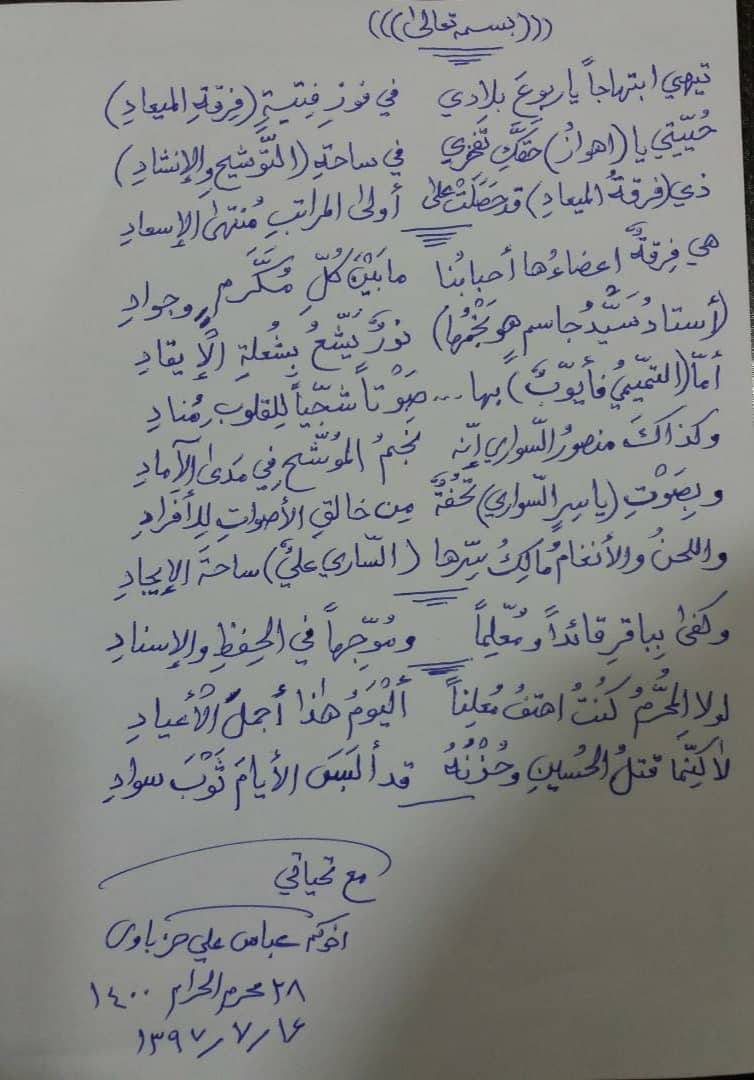 (((بسمه تعالى)))
تيهي ابتهاجاً يا ربوعَ بلادي في فوزِ فِتيةِ (فِرقةِ الميعادِ)
حُيّيتِي يا (اهوازُ) حَقَّكِ تَفخري في ساحةِ (التّوشيحِ والإنشادِ)
ذي (فرقةُ الميعادِ) قد حَصَلَتْ على أولى المراتبِ مُنتهى الإسعادِ
هي فِرقةٌ أعضاءُها أحبابُنا مابَيْنَ كُلِّ مُكَرَّمٍ وجوادِ
(أستادُ سَيّدُ جاسم هو نَجْمُها) نورٌ يَشّعُ بِشُعلةِ الإيقادِ
أمّا (التميّميُ فأيوّبٌ) بها... صَوْتاً شجّياً للقلوبِ مُنادِ
وكذاكَ منصورُ السّواري إنّه نَجمُ الموُشّحِ في مَدىٰ الآمادِ
وبِصَوْتِ (ياسرٍ السّواري) تُحُفةٌ مِن خالقِ الأصواتِ لِلأفرادِ
واللحنُ والأنغامُ مالِكُ سِرّها (السّاري عليٌ) ساحةَ الإيجادِ
وكفىٰ بِباقرِ قائداً ومُعّلِماً ومُوّجِهاً في الحِفظِ والإسنادِ
لولا المُحرَّمُ كُنتُ اهتفُ مُعلِناً أليْوَمُ هٰذا أجملُ الأعيادِ
لاكنّما قتلُ الحُسينِ وحُزْنُهُ قد ألبَسَ الأيامَ ثَوْبَ سوادِ
مع تحياتي
اخوكم عباس علي حزباوى
٢٨ محرم الحرام ١٤٠٠
١٣٩٧/٧/١٦